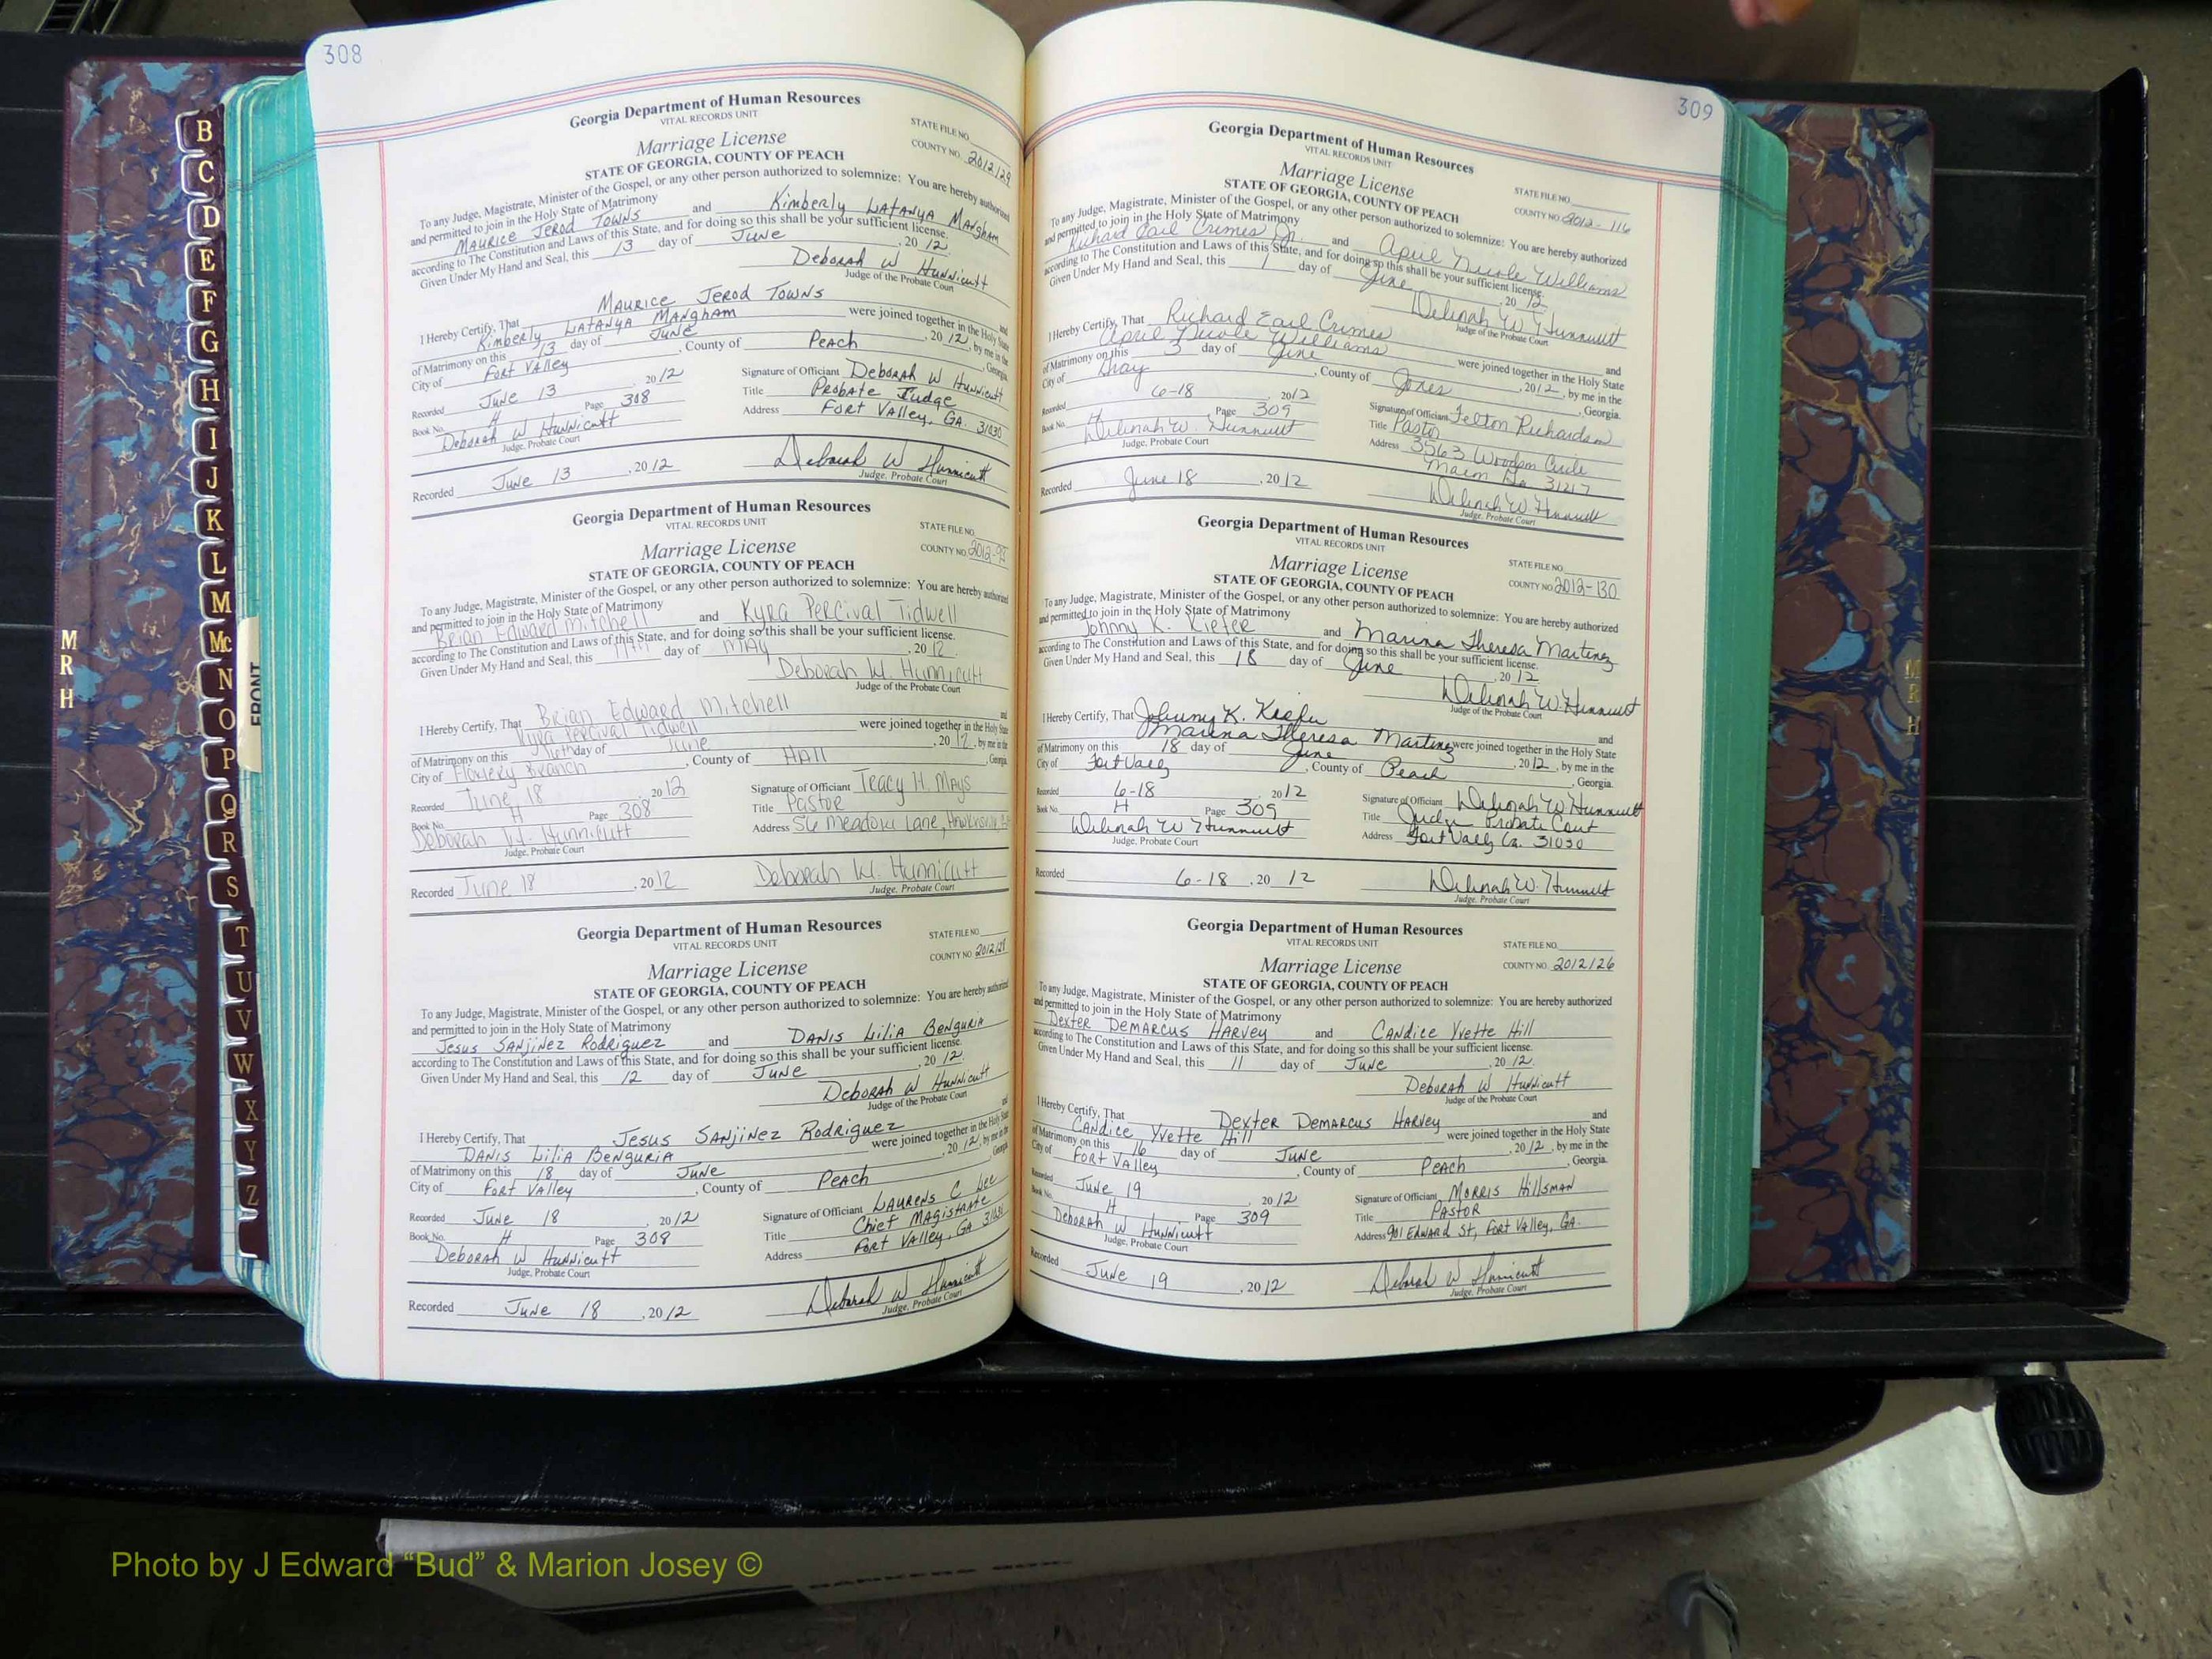 308
Georgia Department of Human Resources
VITAL RECORDS UNIT
STATE FILE NO.
Marriage License
COUNTY NO. 2012129
STATE OF GEORGIA, COUNTY OF PEACH
To any Judge, Magistrate, Minister of the Gospel, or any other person authorized to solemnize: You are hereby authorized
and permitted to join in the Holy State of Matrimony
MAURICE JEROD TOWNS and Kimberly LATANYA MANgham
according to The Constitution and Laws of this State, and for doing so this shall be your sufficient license.
Given Under My Hand and Seal, this 13 day of June, 20 12.
Deborah W Hunnicutt
Judge of the Probate Court
I Hereby Certify, That MAURICE JEROD TOWNS and
Kimberly LATANYA MANgham were joined together in the Holy State
of Matrimony on this 13 day of June, 20 12, by me in the
City of Fort Valley, County of Peach, Georgia.
Recorded June 13, 20 12 Signature of Officiant Deborah W Hunnicutt
Book No. H Page 308 Title Probate Judge
Deborah W Hunnicutt Address Fort Valley, GA. 31030
Judge, Probate Court
Recorded June 13, 20 12 Deborah W Hunnicutt
Judge, Probate Court
Georgia Department of Human Resources
VITAL RECORDS UNIT
STATE FILE NO.
Marriage License
COUNTY NO.
STATE OF GEORGIA, COUNTY OF PEACH
To any Judge, Magistrate, Minister of the Gospel, or any other person authorized to solemnize: You are hereby authorized
and permitted to join in the Holy State of Matrimony
Brian Edward Mitchell and Kyra Percival Tidwell
according to The Constitution and Laws of this State, and for doing so this shall be your sufficient license.
Given Under My Hand and Seal, this day of May, 20 12.
Deborah W. Hunnicutt
Judge of the Probate Court
I Hereby Certify, That Brian Edward Mitchell and
Kyra Percival Tidwell were joined together in the Holy State
of Matrimony on this day of June, 20 12, by me in the
City of Branch, County of Hall, Georgia.
Recorded June 18, 20 12 Signature of Officiant Tracy H. Mays
Book No. H Page 308 Title Pastor
Deborah W. Hunnicutt Address 56 Meadow Lane,
Judge, Probate Court
Recorded June 18, 20 12 Deborah W. Hunnicutt
Judge, Probate Court
Georgia Department of Human Resources
VITAL RECORDS UNIT
STATE FILE NO.
Marriage License
COUNTY NO.
STATE OF GEORGIA, COUNTY OF PEACH
To any Judge, Magistrate, Minister of the Gospel, or any other person authorized to solemnize: You are hereby authorized
and permitted to join in the Holy State of Matrimony
Jesus SANjiNez Rodriguez and DANIS LiliA BENGURIA
according to The Constitution and Laws of this State, and for doing so this shall be your sufficient license.
Given Under My Hand and Seal, this 12 day of June, 20 12.
Deborah W Hunnicutt
Judge of the Probate Court
I Hereby Certify, That Jesus SANjiNez Rodriguez and
DANIS LiliA BENGURIA were joined together in the Holy State
of Matrimony on this 18 day of June, 20 12, by me in the
City of Fort Valley, County of Peach, Georgia.
Recorded June 18, 20 12 Signature of Officiant LAURENS C Lee
Book No. H Page 308 Title Chief Magistrate
Deborah W Hunnicutt Address Fort Valley, GA
Judge, Probate Court
Recorded June 18, 20 12 Deborah W Hunnicutt
Judge, Probate Court
309
Georgia Department of Human Resources
VITAL RECORDS UNIT
STATE FILE NO.
Marriage License
COUNTY NO. 2012-116
STATE OF GEORGIA, COUNTY OF PEACH
To any Judge, Magistrate, Minister of the Gospel, or any other person authorized to solemnize: You are hereby authorized
and permitted to join in the Holy State of Matrimony
Richard Earl Crimes Jr. and April Nicole Williams
according to The Constitution and Laws of this State, and for doing so this shall be your sufficient license.
Given Under My Hand and Seal, this 1 day of June, 20 12.
Deborah W. Hunnicutt
Judge of the Probate Court
I Hereby Certify, That Richard Earl Crimes and
April Nicole Williams were joined together in the Holy State
of Matrimony on this 3 day of June, 20 12, by me in the
City of Gray, County of Jones, Georgia.
Recorded 6-18, 20 12 Signature of Officiant Felton Richardson
Book No. H Page 309 Title Pastor
Deborah W. Hunnicutt Address 3563 Woodson Circle
Judge, Probate Court Macon Ga 31217
Recorded June 18, 20 12 Deborah W. Hunnicutt
Judge, Probate Court
Georgia Department of Human Resources
VITAL RECORDS UNIT
STATE FILE NO.
Marriage License
COUNTY NO. 2012-130
STATE OF GEORGIA, COUNTY OF PEACH
To any Judge, Magistrate, Minister of the Gospel, or any other person authorized to solemnize: You are hereby authorized
and permitted to join in the Holy State of Matrimony
Johnny K. Kiefer and Marina Theresa Martinez
according to The Constitution and Laws of this State, and for doing so this shall be your sufficient license.
Given Under My Hand and Seal, this 18 day of June, 20 12.
Deborah W. Hunnicutt
Judge of the Probate Court
I Hereby Certify, That Johnny K. Kiefer and
Marina Theresa Martinez were joined together in the Holy State
of Matrimony on this 18 day of June, 20 12, by me in the
City of Fort Valley, County of Peach, Georgia.
Recorded 6-18, 20 12 Signature of Officiant Deborah W. Hunnicutt
Book No. H Page 309 Title Judge Probate Court
Deborah W Hunnicutt Address Fort Valley Ga. 31030
Judge, Probate Court
Recorded 6-18, 20 12 Deborah W. Hunnicutt
Judge, Probate Court
Georgia Department of Human Resources
VITAL RECORDS UNIT
STATE FILE NO.
Marriage License
COUNTY NO. 2012126
STATE OF GEORGIA, COUNTY OF PEACH
To any Judge, Magistrate, Minister of the Gospel, or any other person authorized to solemnize: You are hereby authorized
and permitted to join in the Holy State of Matrimony
Dexter DEMARCUS HARVEY and CANdice Yvette Hill
according to The Constitution and Laws of this State, and for doing so this shall be your sufficient license.
Given Under My Hand and Seal, this 11 day of June, 20 12.
Deborah W Hunnicutt
Judge of the Probate Court
I Hereby Certify, That Dexter Demarcus HARVEY and
CANdice Yvette Hill were joined together in the Holy State
of Matrimony on this 16 day of June, 20 12, by me in the
City of Fort Valley, County of Peach, Georgia.
Recorded June 19, 20 12 Signature of Officiant Morris Hillsman
Book No. H Page 309 Title PASTOR
Deborah W Hunnicutt Address 901 Edward St, Fort Valley, GA.
Judge, Probate Court
Recorded June 19, 20 12 Deborah W Hunnicutt
Judge, Probate Court
B
C
D
E
F
G
H
I
J
K
L
M
Mc
N
O
P
Q
R
S
T
U
V
W
X
Y
Z
FRONT
M
R
H
M
R
H
Photo by J Edward “Bud” & Marion Josey ©